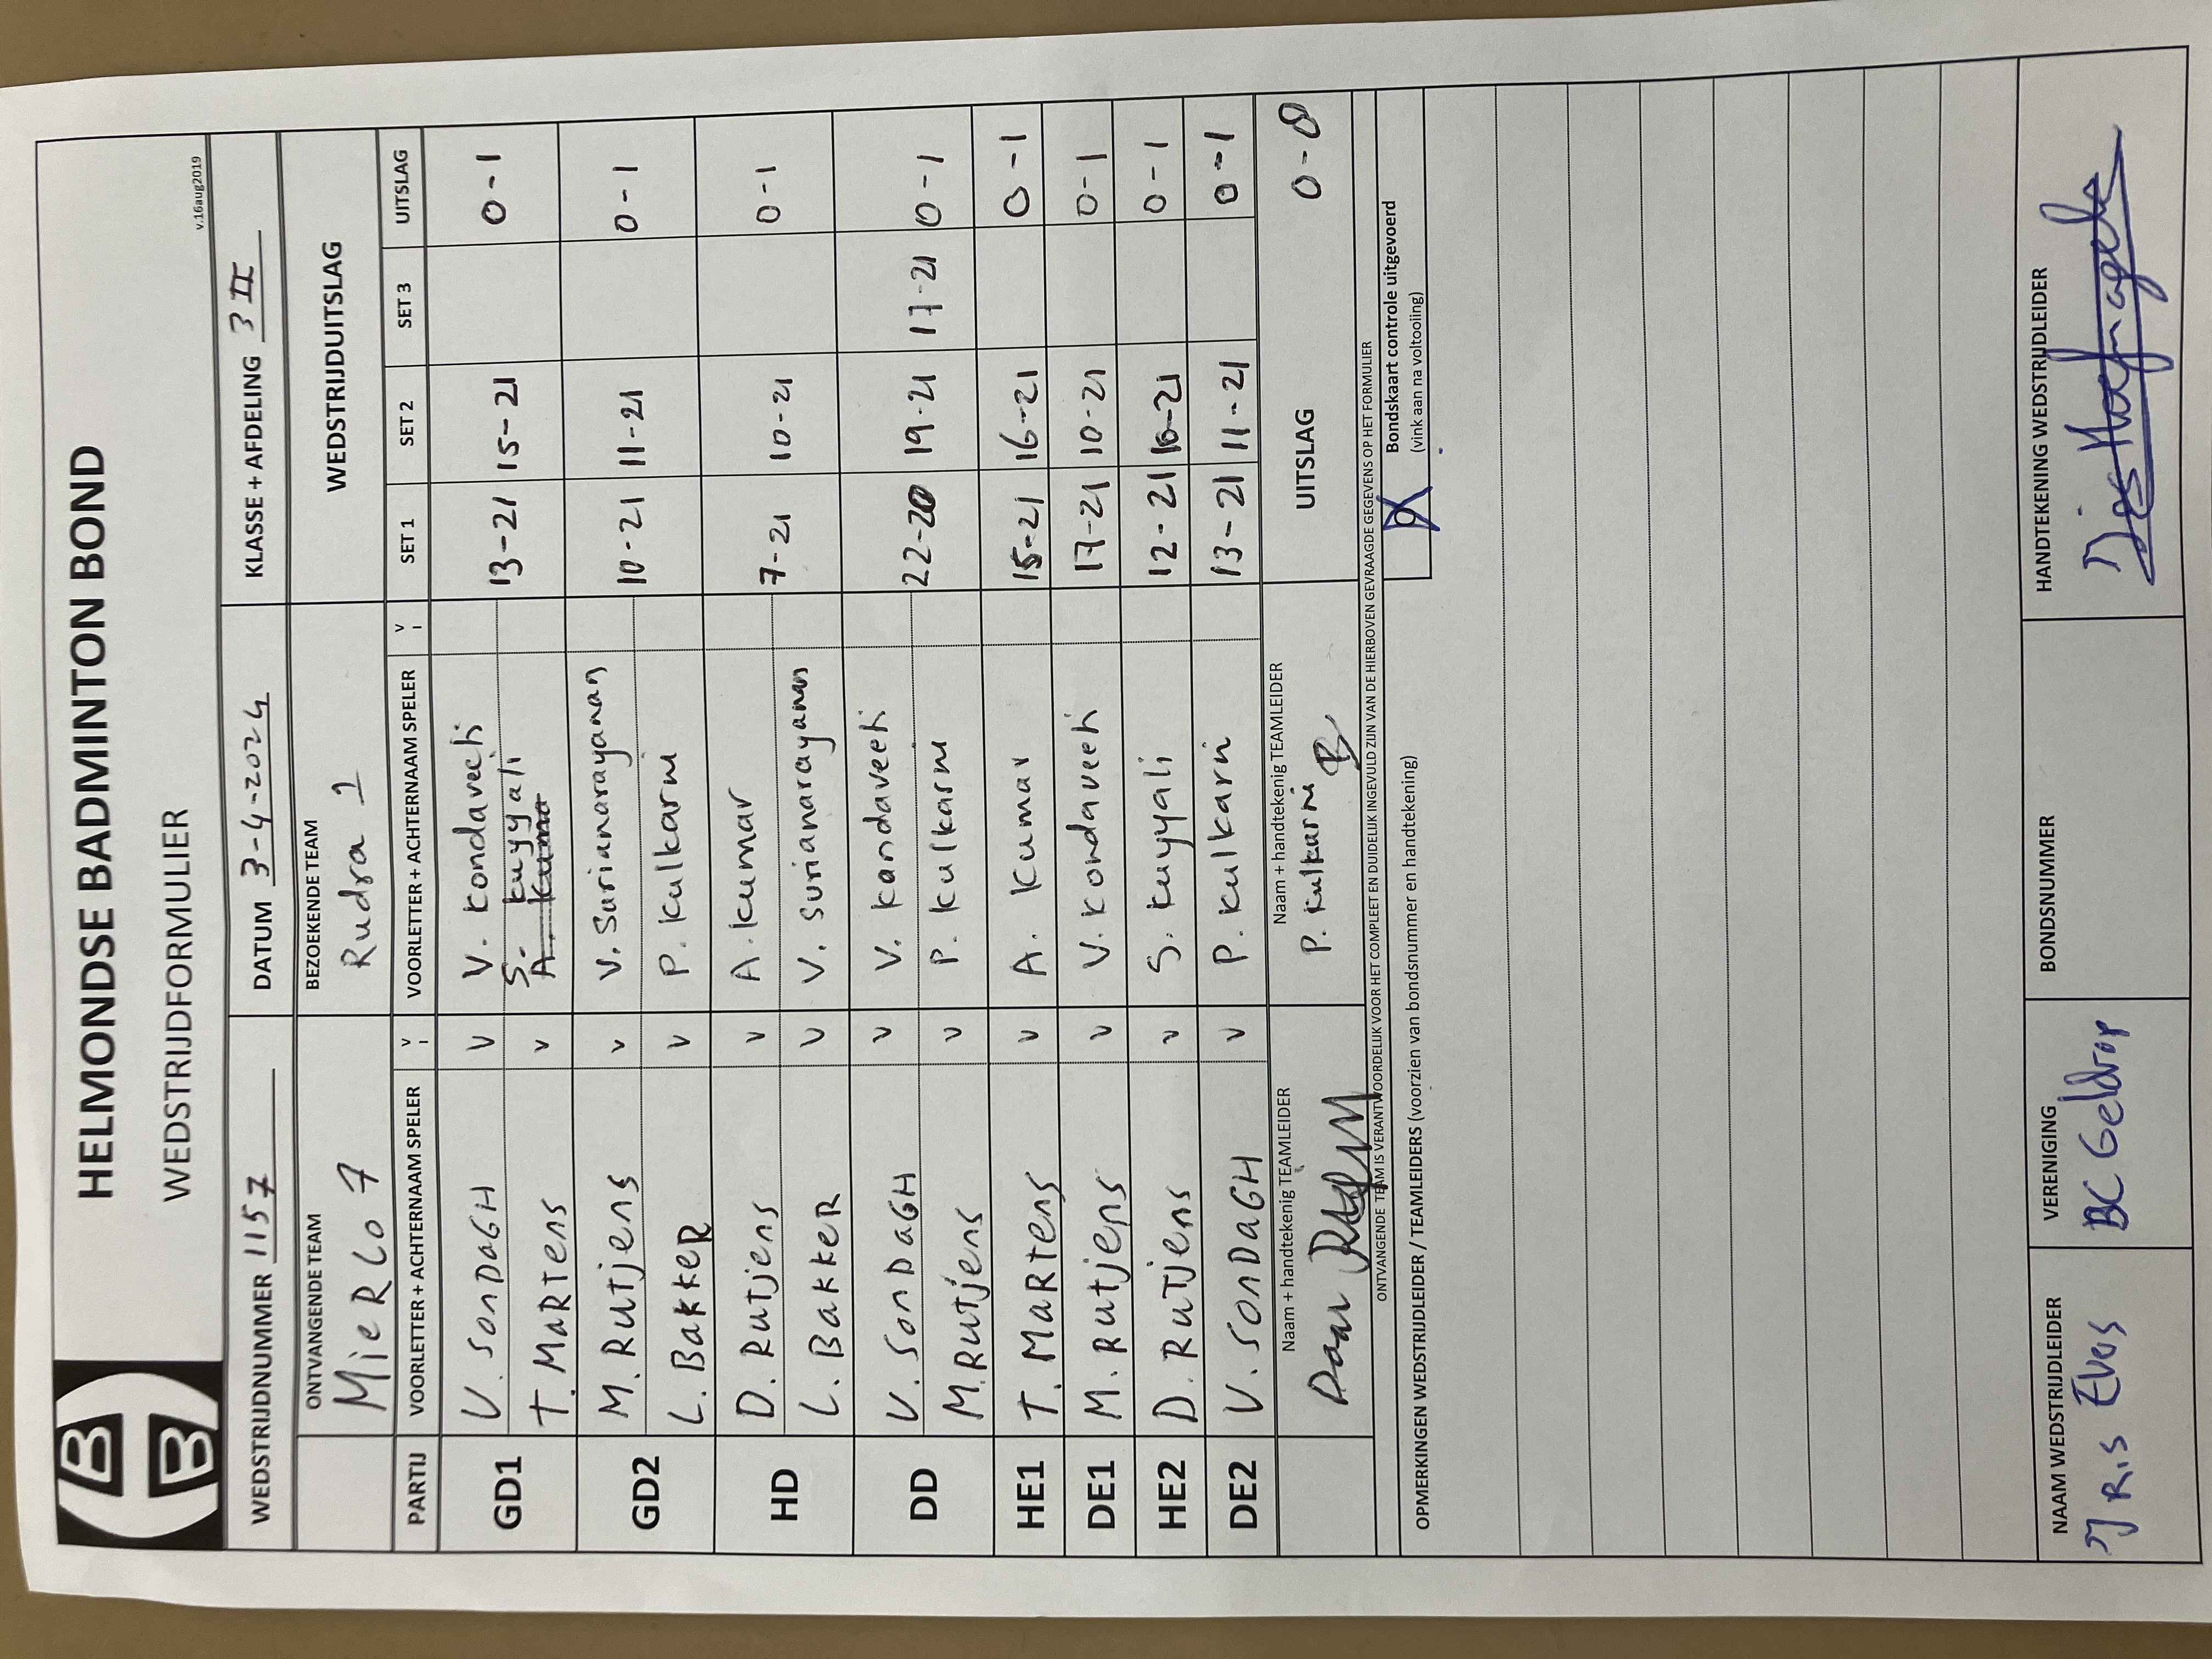 HELMONDSE BADMINTON BOND
WEDSTRIJDFORMULIER
v.16aug2019
WEDSTRIJDNUMMER 1157 DATUM 3-4-2024 KLASSE + AFDELING 3 II
ONTVANGENDE TEAM BEZOEKENDE TEAM WEDSTRIJDUITSLAG
MieRLo 7 Rudra 1
PARTIJ VOORLETTER + ACHTERNAAM SPELER V I VOORLETTER + ACHTERNAAM SPELER V I SET 1 SET 2 SET 3 UITSLAG
GD1 V. SonDaGH V V. Kondaveeti 13-21 15-21 0-1
T. MaRtens V S. Kuyyali
A. Kuma
GD2 M. Rutjens V V. Surianarayanan 10-21 11-21 0-1
L. BakkeR V P. Kulkarni
HD D. Rutjens V A. Kumar 7-21 10-21 0-1
L. BakkeR V V. Surianarayanan
DD V. SonDaGH V V. Kandaveeti 22-20 19-21 17-21 0-1
M. Rutjens V P. Kulkarni
HE1 T. MaRtens V A. Kumar 15-21 16-21 0-1
DE1 M. Rutjens V V. Kondaveeti 17-21 10-21 0-1
HE2 D. RuTjens V S. Kuyyali 12-21 16-21 0-1
DE2 V. SonDaGH V P. Kulkarni 13-21 11-21 0-1
Naam + handtekenig TEAMLEIDER Naam + handtekenig TEAMLEIDER UITSLAG 0-8
Daan P. Kulkarni
ONTVANGENDE TEAM IS VERANTWOORDELIJK VOOR HET COMPLEET EN DUIDELIJK INGEVULD ZIJN VAN DE HIERBOVEN GEVRAAGDE GEGEVENS OP HET FORMULIER
Bondskaart controle uitgevoerd
(vink aan na voltooiing)
OPMERKINGEN WEDSTRIJDLEIDER / TEAMLEIDERS (voorzien van bondsnummer en handtekening)
NAAM WEDSTRIJDLEIDER VERENIGING BONDSNUMMER HANDTEKENING WEDSTRIJDLEIDER
BC Geldrop